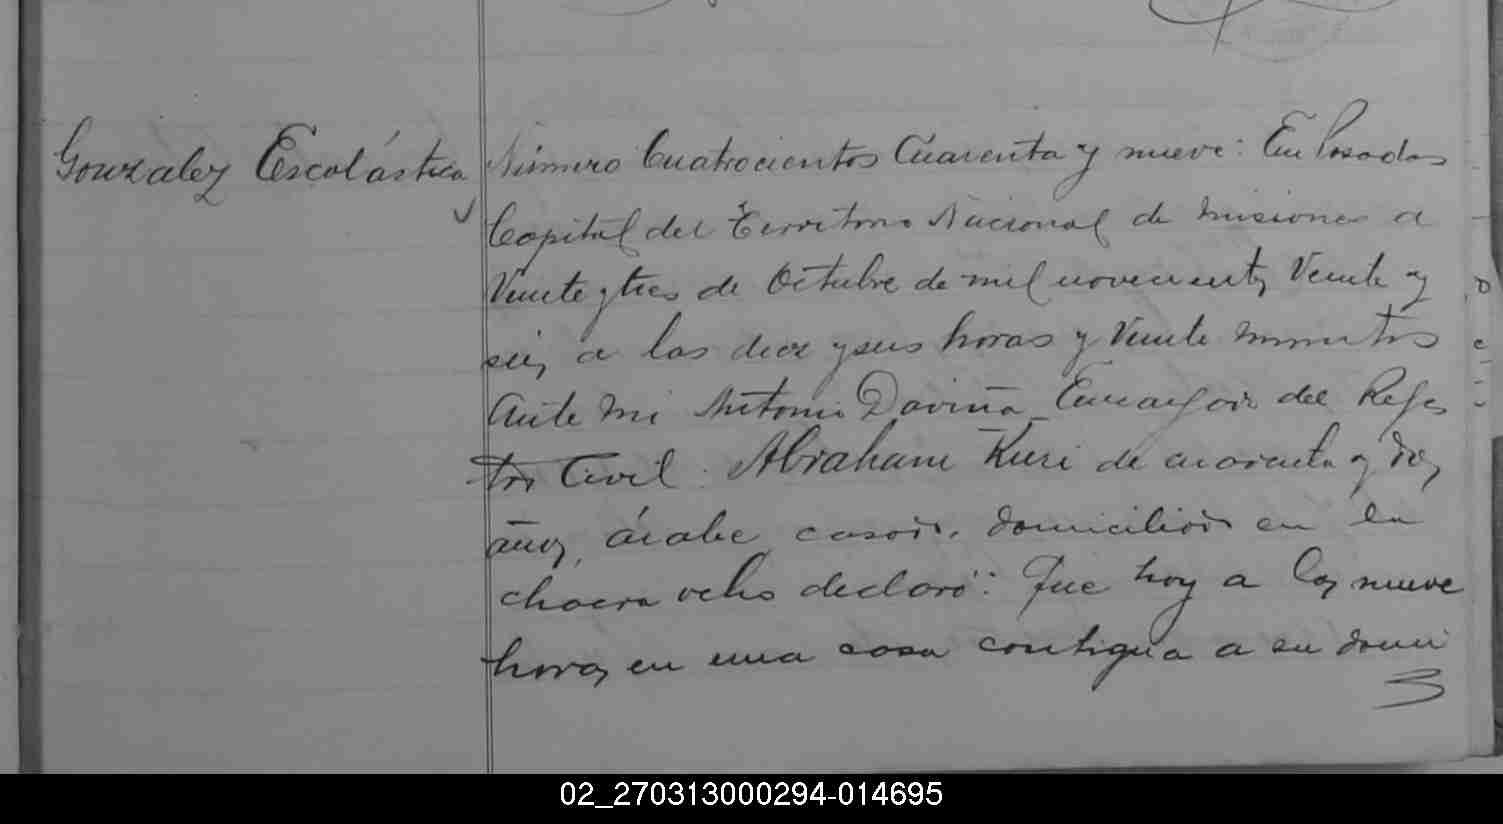 Gonzalez Escolástica
Número Cuatrocientos Cuarenta y nueve: En Posadas
Capital del Territorio Nacional de Misiones a
Veinte y tres de Octubre de mil novecientos Veinte y
seis a las diez y seis horas y Veinte minutos
Ante mi Antonio Daviña Encargado del Regis
tro Civil: Abraham Kuri de cuarenta y dos
años, árabe, casado, domiciliado en la
chacra ocho declaró: Que hoy a las nueve
horas en una casa contigua a su domi
02_270313000294-014695